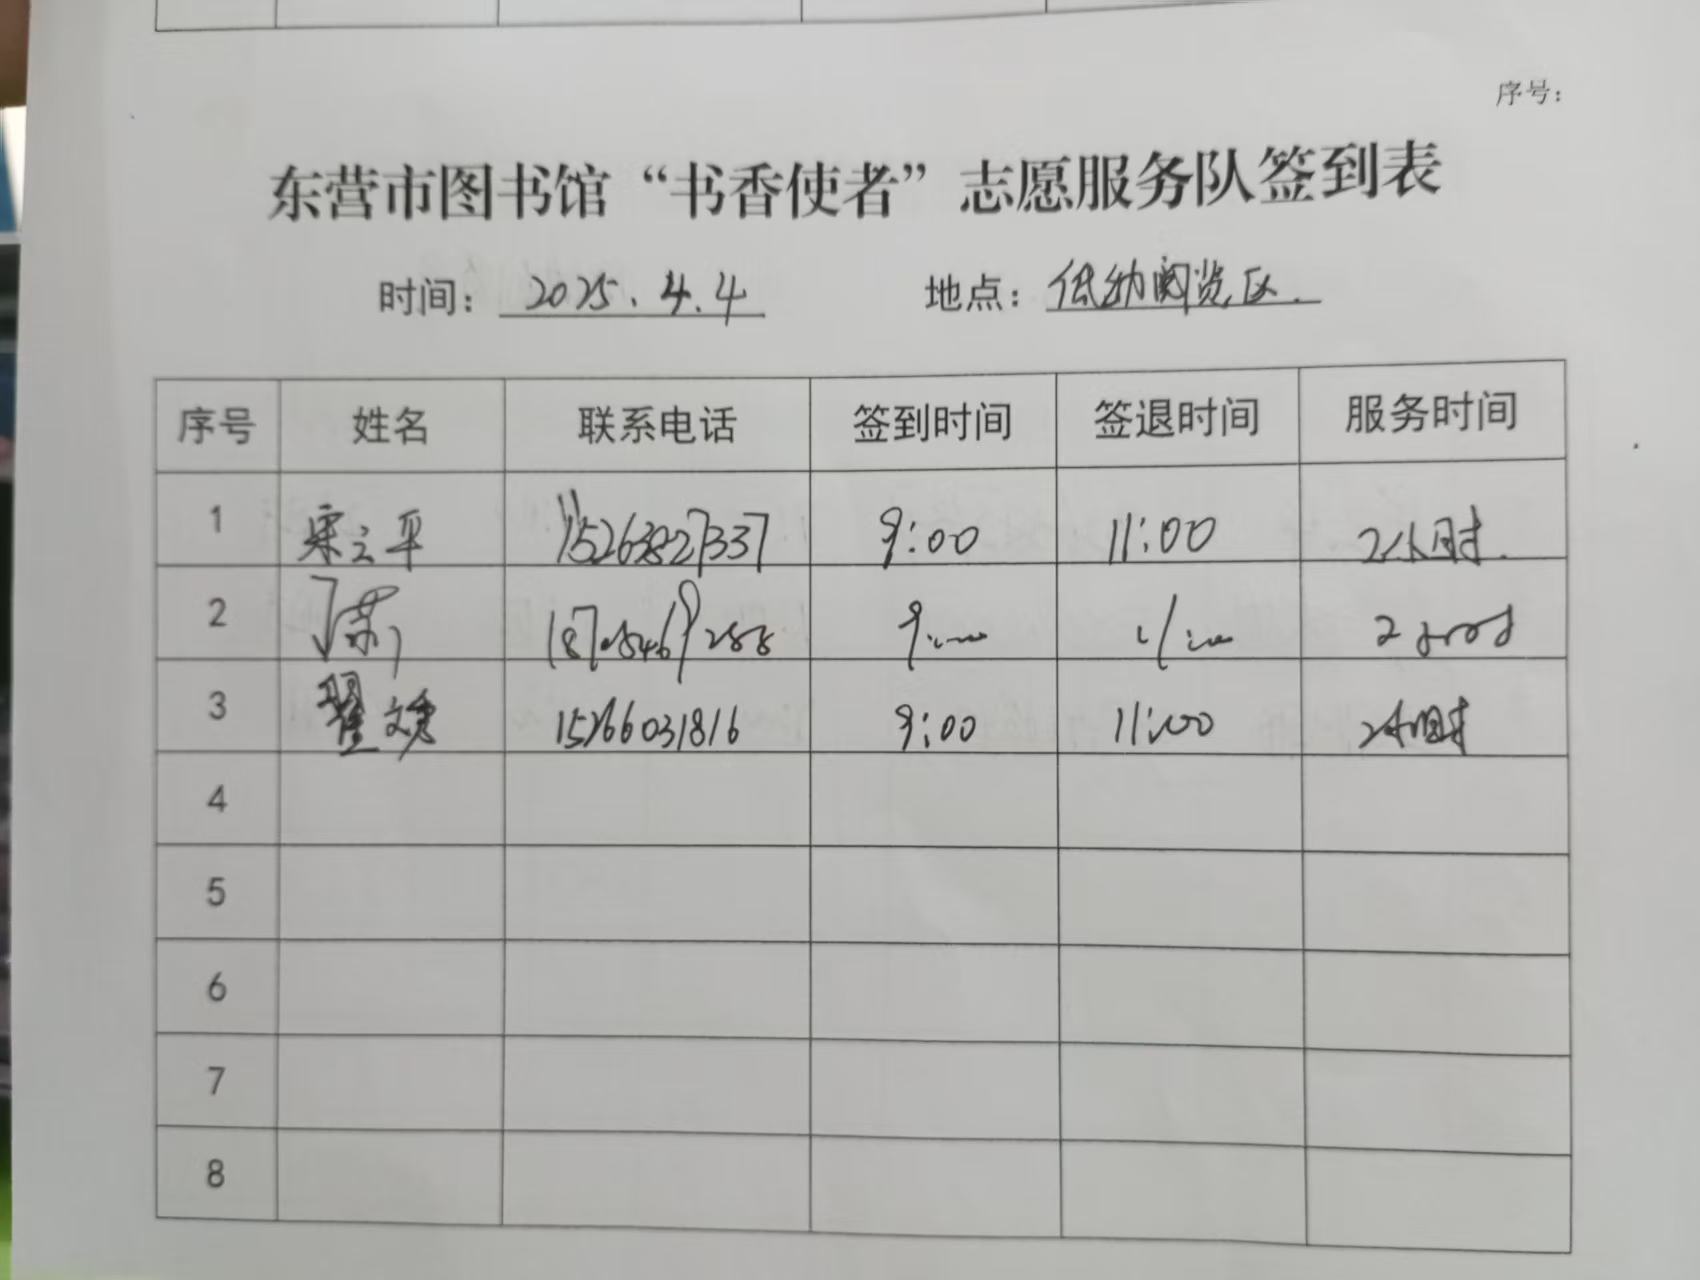 序号：
东营市图书馆“书香使者”志愿服务队签到表
时间：2025.4.4 地点：低幼阅览区.
序号 姓名 联系电话 签到时间 签退时间 服务时间
1 宋立平 15263827337 9:00 11:00 2小时.
2 9:00 11:00 2小时
3 翟文 15266031816 9:00 11:00 2小时
4
5
6
7
8